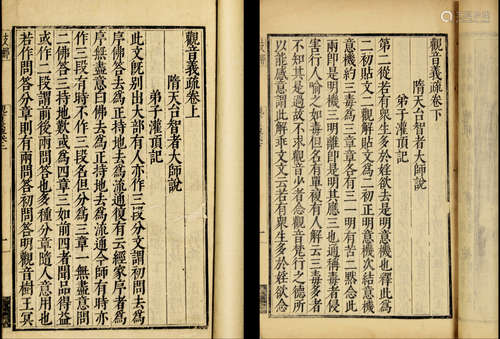 觀音義疏卷上
隋天台智者大師說
弟子灌頂記
此文既別出大部有人亦作三段分文謂初問去為
序佛答去為正持地去為流通復有云經家序者為
序無盡意白佛去為正持地去為流通今師有時亦
作三段有時不作三段名但分為三章一無盡意問
二佛答三持地歎或為四章三如前四者聞品得益
或作二段謂前後兩問答也多種分章隨人意用也
若作問答分章則有兩問答初問答明觀音樹王冥
觀音義疏卷下
隋天台智者大師說
弟子灌頂記
第二從若有眾生多於婬欲去是明意機也釋此為
二初貼文二觀解貼文為二初正明意機次結意機
意機約三毒為三章章各有三一明有苦二明念此
兩即是明機三明離即是明其應三也通稱毒者侵
害行人喻之如毒但名有單複有人解云三毒多者
是過是故不求觀音少者念觀音梵行之德所
以能感意謂此解非文文云若有眾生多於婬欲念